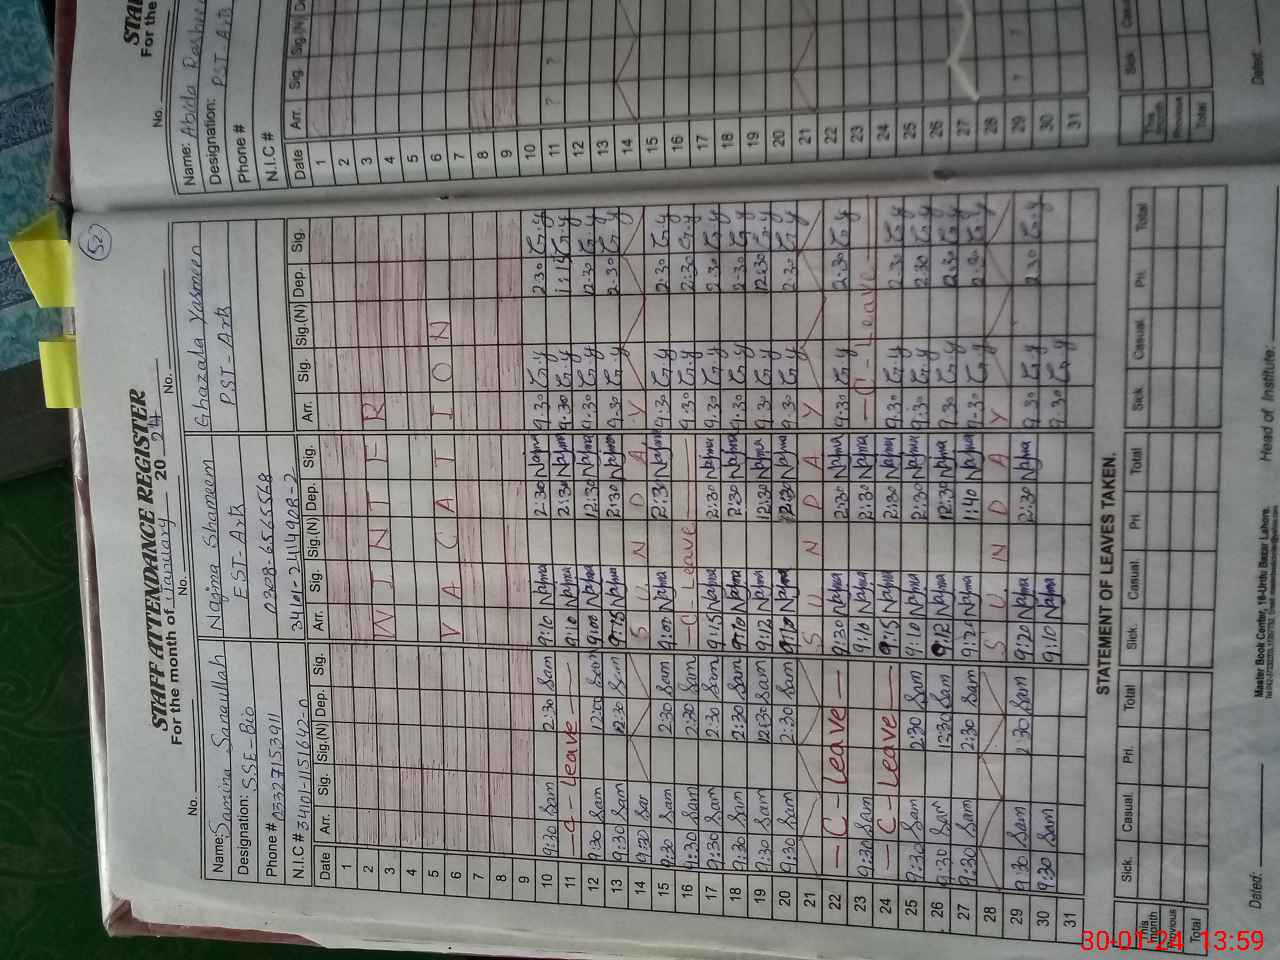 STAFF ATTENDANCE REGISTER
For the month of January 2024
No. No. No.
50
Name: Samina Sanaullah Najma Shameem Ghazala Yasmeen
Designation: SSE-Bio EST-Art PST-Art
Phone # 03327153911 0308-6565568
N.I.C # 34101-1151642-0 34101-2414908-2
Date Arr. Sig. Sig.(N) Dep. Sig. Arr. Sig. Sig.(N) Dep. Sig. Arr. Sig. Sig.(N) Dep. Sig.
1
2
3 WINTER
4
5
6 VACATION
7
8
9
10 9:30 Sam 2:30 Sam 9:10 Najma 2:30 Najma 9:30 G.y 2:30 G.y
11 -C- Leave 9:10 Najma 2:30 Najma 9:30 G.y 1:15 G.y
12 9:30 Sam 12:30 Sam 9:00 Najma 12:30 Najma 9:30 G.y 12:30 G.y
13 9:30 Sam 2:30 Sam 9:15 Najma 2:30 Najma 9:30 G.y 2:30 G.y
14 SUNDAY
15 9:30 Sam 2:30 Sam 9:00 Najma 2:30 Najma 9:30 G.y 2:30 G.y
16 9:30 Sam 2:30 Sam -C- Leave 9:30 G.y 2:30 G.y
17 9:30 Sam 2:30 Sam 9:15 Najma 2:30 Najma 9:30 G.y 2:30 G.y
18 9:30 Sam 2:30 Sam 9:10 Najma 2:30 Najma 9:30 G.y 2:30 G.y
19 9:30 Sam 12:30 Sam 9:12 Najma 12:30 Najma 9:30 G.y 12:30 G.y
20 9:30 Sam 2:30 Sam 9:10 Najma 2:30 Najma 9:30 G.y 2:30 G.y
21 SUNDAY
22 -C- Leave 9:30 Najma 2:30 Najma 9:30 G.y 2:30 G.y
23 9:30 Sam 9:10 Najma 2:30 Najma -C- Leave
24 -C- Leave 9:15 Najma 2:30 Najma 9:30 G.y 2:30 G.y
25 9:30 Sam 2:30 Sam 9:10 Najma 2:30 Najma 9:30 G.y 2:30 G.y
26 9:30 Sam 12:30 Sam 9:12 Najma 12:30 Najma 9:30 G.y 12:30 G.y
27 9:30 Sam 2:30 Sam 9:20 Najma 1:40 Najma 9:30 G.y 2:30 G.y
28 SUNDAY
29 9:30 Sam 2:30 Sam 9:20 Najma 2:30 Najma 9:30 G.y 2:30 G.y
30 9:30 Sam 9:10 Najma 9:30 G.y
31
STATEMENT OF LEAVES TAKEN.
Sick. Casual. Pri. Total Sick. Casual. Pri. Total Sick Casual Pri. Total
This month
Previous
Total
Dated: Master Book Center, 16-Urdu Bazar Lahore. Head of Institute:
STAF
For the
No.
Name: Abida
Designation: PST
Phone #
N.I.C #
Date Arr. Sig. Sig.(N)
1
2
3
4
5
6
7
8
9
10
11 ? ?
12
13
14
15
16
17
18
19
20
21
22
23
24
25
26
27
28
29 ? ?
30
31
Sick
This month
Previous
Total
Dated:
30-01-24 13:59